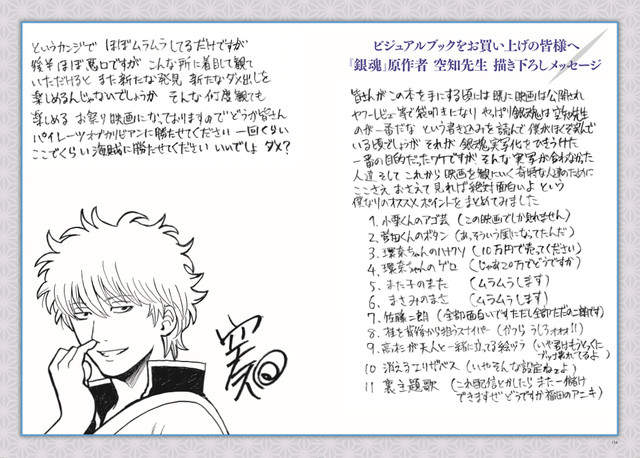 ビジュアルブックをお買い上げの皆様へ
『銀魂』原作者 空知先生 描き下ろしメッセージ
皆さんがこの本を手にする頃には既に映画は公開され
ヤフーレビュー等で袋叩きになり やっぱり銀魂は空知先生
のが一番だな という書き込みを読んで 僕がほくそ笑んで
いる頃でしょうが それが 銀魂実写化をひきうけた
一番の目的だったワケですが そんな実写が合わなかった
人達 そして これから映画を観にいく奇特な人達のために
ここさえ おさえて見れば絶対面白いよ という
僕なりのオススメポイントをまとめてみました
1. 小栗くんのアゴ芸 (この映画でしか見れません)
2. 菅田くんのボタン (あっ そういう風になってたんだ)
3. 環奈ちゃんのハナクソ (10万円で売ってください)
4. 環奈ちゃんのゲロ (じゃあ20万でどうですか)
5. また子のまた (ムラムラします)
6. まさみのまさ (ムラムラします)
7. 佐藤二朗 (全部面白いです ただし全部ただの二朗です)
8. 桂を背後から狙うスナイパー (ヅラ うしろォォォ!!)
9. 高杉が天人と一緒に立ってる絵ヅラ (いや君はもうとっくに
ブッ壊れてるよ)
10 消えるエリザベス (いやそんな設定ねェよ)
11 裏主題歌 (これ配信とかしたら また一儲け
できますぜ どうですか 福田のアニキ)
というカンジで ほぼムラムラしてるだけですが
後半ほぼ悪口ですが こんな所に着目して観て
いただけると また新たな発見 新たなダメ出しを
楽しめるんじゃないでしょうか そんな何度観ても
楽しめる お祭り映画になっておりますので どうか皆さん
パイレーツオブカリビアンに勝たせてください 一回くらい
ここでくらい 海賊に勝たせてください いいでしょ ダメ?
空知